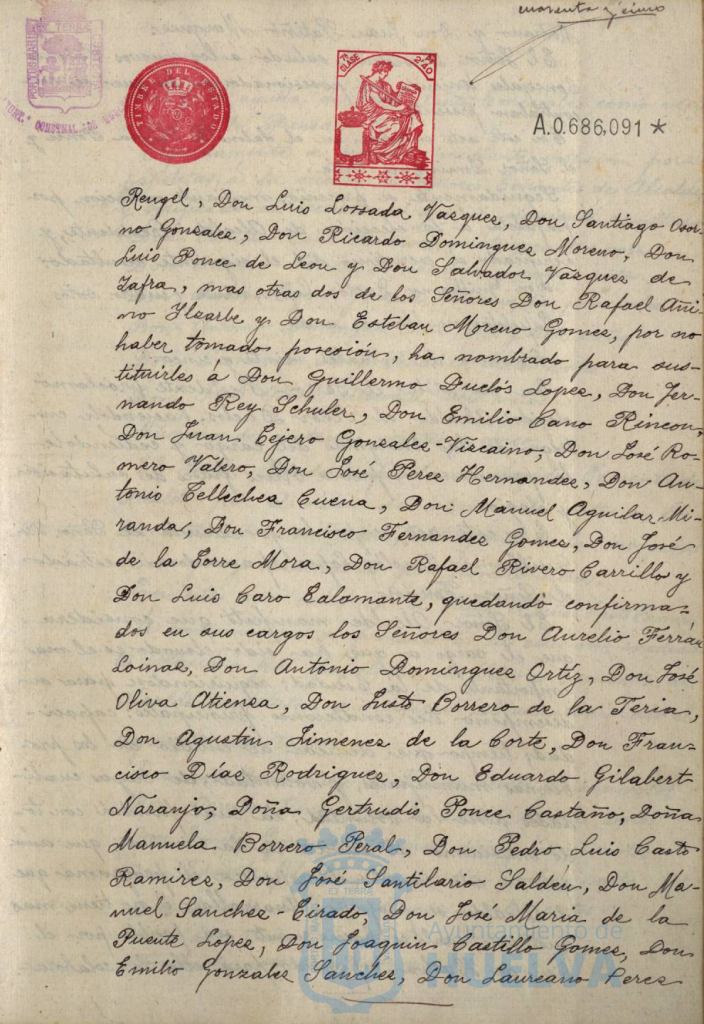 cuarenta y cinco
TIMBRE DEL ESTADO
7ª CLASE
2'40
A.0.686,091 *
Rengel, Don Luis Lossada Vazquez, Don Santiago Osor-
no Gonzalez, Don Ricardo Dominguez Moreno, Don
Luis Ponce de Leon y Don Salvador Vazquez de
Zafra, mas otras dos de los Señores Don Rafael Añi-
no Ylzarbe y Don Esteban Moreno Gomez, por no
haber tomados posesión, ha nombrado para sus-
tituirles á Don Guillermo Duclós Lopez, Don Fer-
nando Rey Schuler, Don Emilio Cano Rincon,
Don Juan Tejero Gonzalez-Vizcaino, Don José Ro-
mero Valero, Don José Perez Hernandez, Don An-
tonio Tellechea Cuena, Don Manuel Aguilar Mi-
randa, Don Francisco Fernandez Gomez, Don José
de la Torre Mora, Don Rafael Rivero Carrillo y
Don Luis Caro Talamante, quedando confirma-
dos en sus cargos los Señores Don Aurelio Ferrán
Loinaz, Don Antonio Dominguez Ortíz, Don José
Oliva Atienza, Don Justo Borrero de la Feria,
Don Agustin Jimenez de la Corte, Don Fran-
cisco Díaz Rodriguez, Don Eduardo Gilabert
Naranjo, Doña Gertrudis Ponce Castaño, Doña
Manuela Borrero Peral, Don Pedro Luis Casto
Ramirez, Don José Santilario Saldén, Don Ma-
nuel Sanchez-Tirado, Don José Maria de la
Puente Lopez, Don Joaquin Castillo Gomez, Don
Emilio Gonzalez Sanchez, Don Laureano Perez
Ayuntamiento de
HUELVA